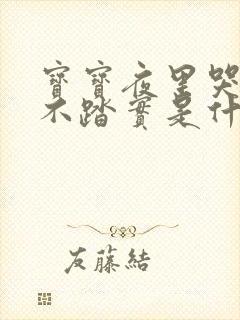 寶寶夜里哭
不踏實是什
友藤結